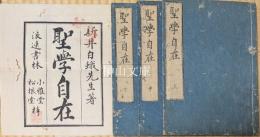 新井白蛾先生著
聖學自在
浪速書林
小雅堂
松根堂
梓
聖學自在
下
聖學自在
中
聖學自在
上